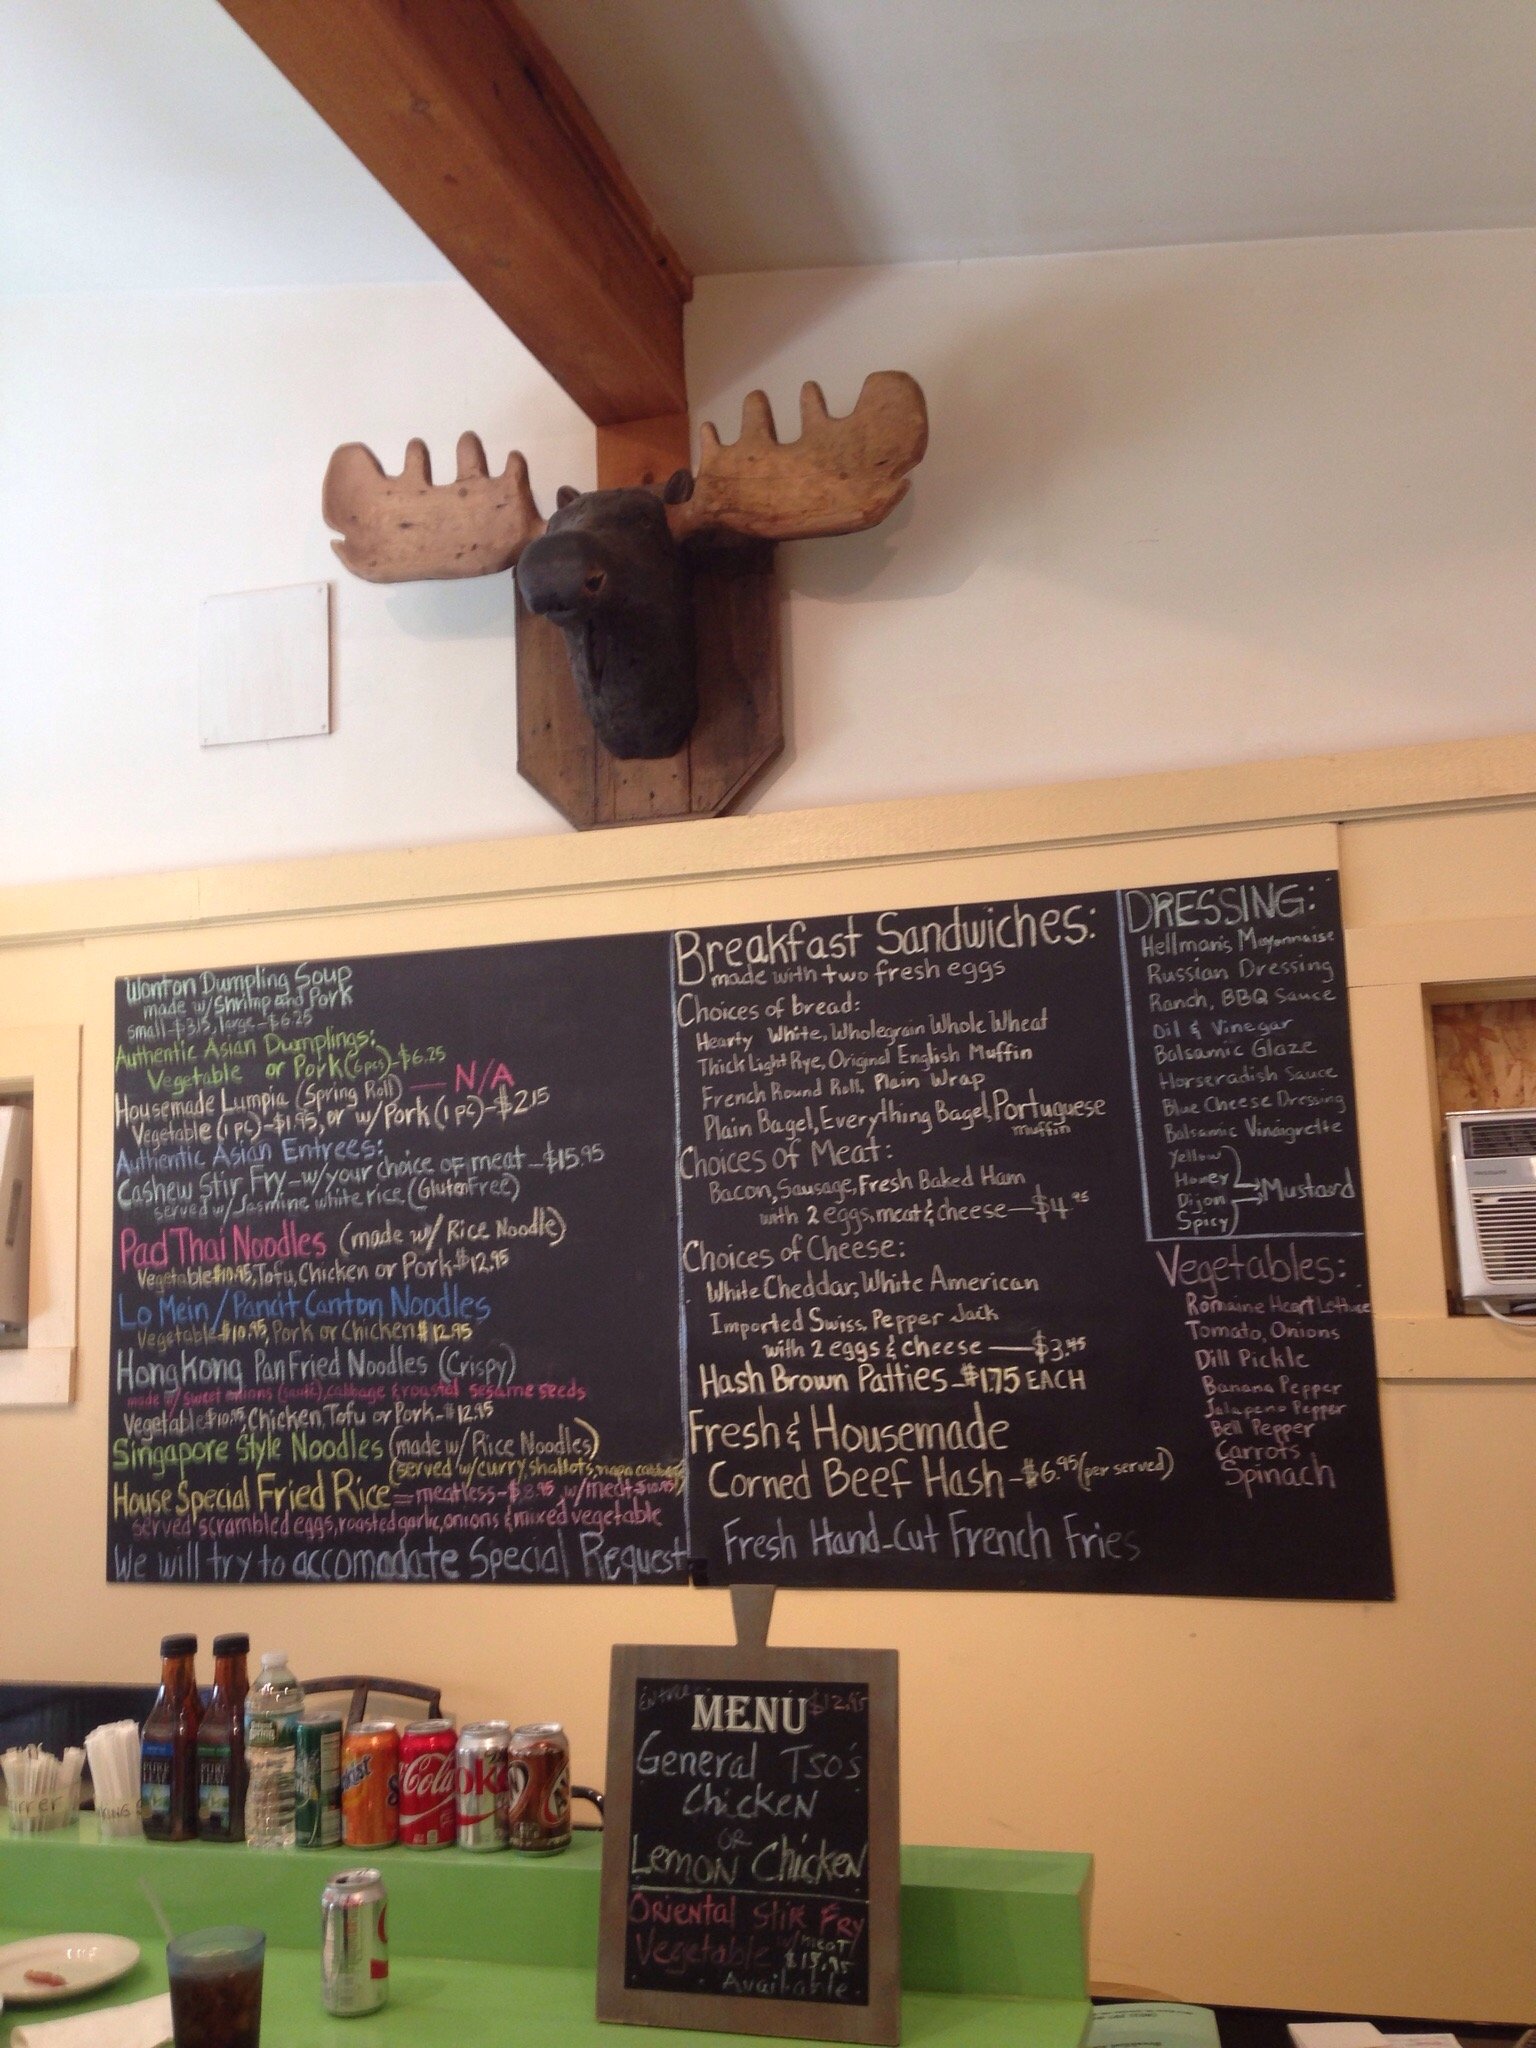 Wonton Dumpling Soup
made w/Shrimp and Pork
small-$3.15, large-$6.25
Authentic Asian Dumplings:
Vegetable or Pork (6pcs)-$6.25
Housemade Lumpia (Spring Roll) — N/A
Vegetable (1 pc)-$1.95, or w/Pork (1 pc)-$2.15
Authentic Asian Entrees:
Cashew Stir Fry-w/your choice of meat-$15.95
served w/Jasmine white rice (Gluten Free)
Pad Thai Noodles (made w/ Rice Noodle)
Vegetable $10.95, Tofu, Chicken or Pork $12.95
Lo Mein / Pancit Canton Noodles
Vegetable-$10.95, Pork or Chicken $12.95
Hong Kong Pan Fried Noodles (Crispy)
made w/ sweet onions (sauté), cabbage & roasted sesame seeds
Vegetable $10.95, Chicken, Tofu or Pork-$12.95
Singapore Style Noodles (made w/ Rice Noodles)
(served w/ curry, shallots, napa cabbage)
House Special Fried Rice = meatless-$8.95, w/meat $10.95
served scrambled eggs, roasted garlic, onions & mixed vegetable
We will try to accomodate Special Request
Breakfast Sandwiches:
made with two fresh eggs
Choices of bread:
Hearty White, Wholegrain Whole Wheat
Thick Light Rye, Original English Muffin
French Round Roll, Plain Wrap
Plain Bagel, Everything Bagel, Portuguese
muffin
Choices of Meat:
Bacon, Sausage, Fresh Baked Ham
with 2 eggs, meat & cheese—$4.95
Choices of Cheese:
White Cheddar, White American
Imported Swiss, Pepper Jack
with 2 eggs & cheese —$3.45
Hash Brown Patties-$1.75 EACH
Fresh & Housemade
Corned Beef Hash-$6.95 (per served)
Fresh Hand-Cut French Fries
DRESSING:
Hellman's Mayonnaise
Russian Dressing
Ranch, BBQ Sauce
Oil & Vinegar
Balsamic Glaze
Horseradish Sauce
Blue Cheese Dressing
Balsamic Vinaigrette
Yellow
Honey
Dijon
Spicy
Mustard
Vegetables:
Romaine Heart Lettuce
Tomato, Onions
Dill Pickle
Banana Pepper
Jalapeno Pepper
Bell Pepper
Carrots
Spinach
MENU $12.95
General Tso's
Chicken
OR
Lemon Chicken
Oriental Stir Fry
Vegetable w/ meat/
$15.95
Available.
PURE
LEAF
PURE
LEAF
Coca-Cola
Coke
A&W